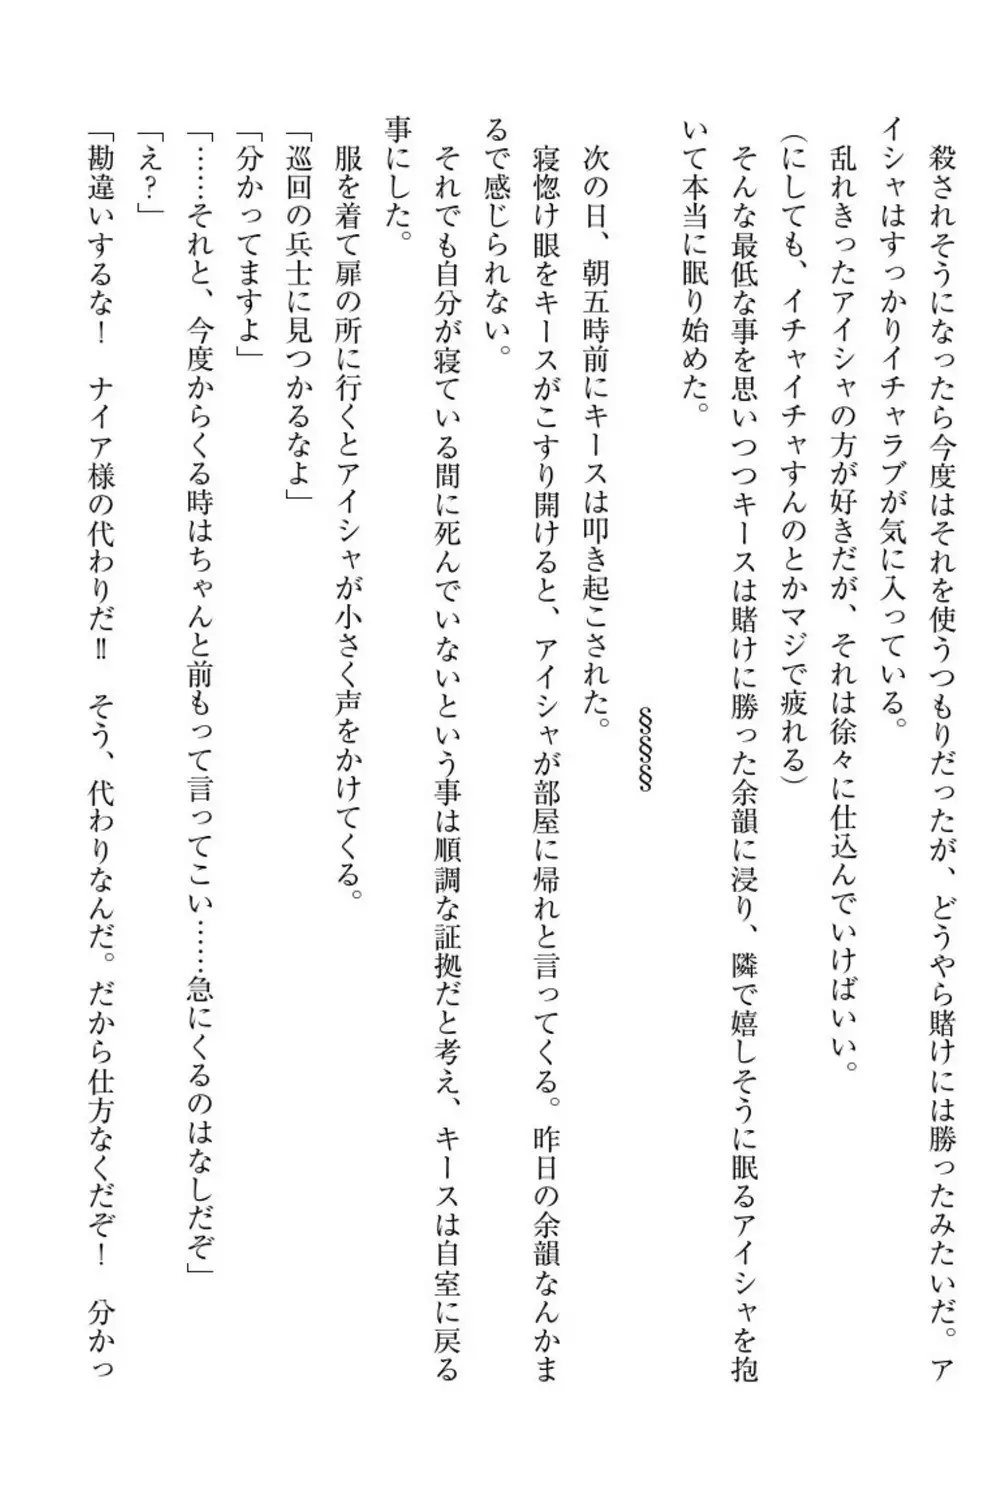 殺されそうになったら今度はそれを使うつもりだったが、どうやら賭けには勝ったみたいだ。ア
イシャはすっかりイチャラブが気に入っている。
乱れきったアイシャの方が好きだが、それは徐々に仕込んでいけばいい。
(にしても、イチャイチャすんのとかマジで疲れる)
そんな最低な事を思いつつキースは賭けに勝った余韻に浸り、隣で嬉しそうに眠るアイシャを抱
いて本当に眠り始めた。
§§§§
次の日、朝五時前にキースは叩き起こされた。
寝惚け眼をキースがこすり開けると、アイシャが部屋に帰れと言ってくる。昨日の余韻なんかま
るで感じられない。
それでも自分が寝ている間に死んでいないという事は順調な証拠だと考え、キースは自室に戻る
事にした。
服を着て扉の所に行くとアイシャが小さく声をかけてくる。
「巡回の兵士に見つかるなよ」
「分かってますよ」
「……それと、今度からくる時はちゃんと前もって言ってこい……急にくるのはなしだぞ」
「え?」
「勘違いするな！　ナイア様の代わりだ‼　そう、代わりなんだ。だから仕方なくだぞ！　分かっ